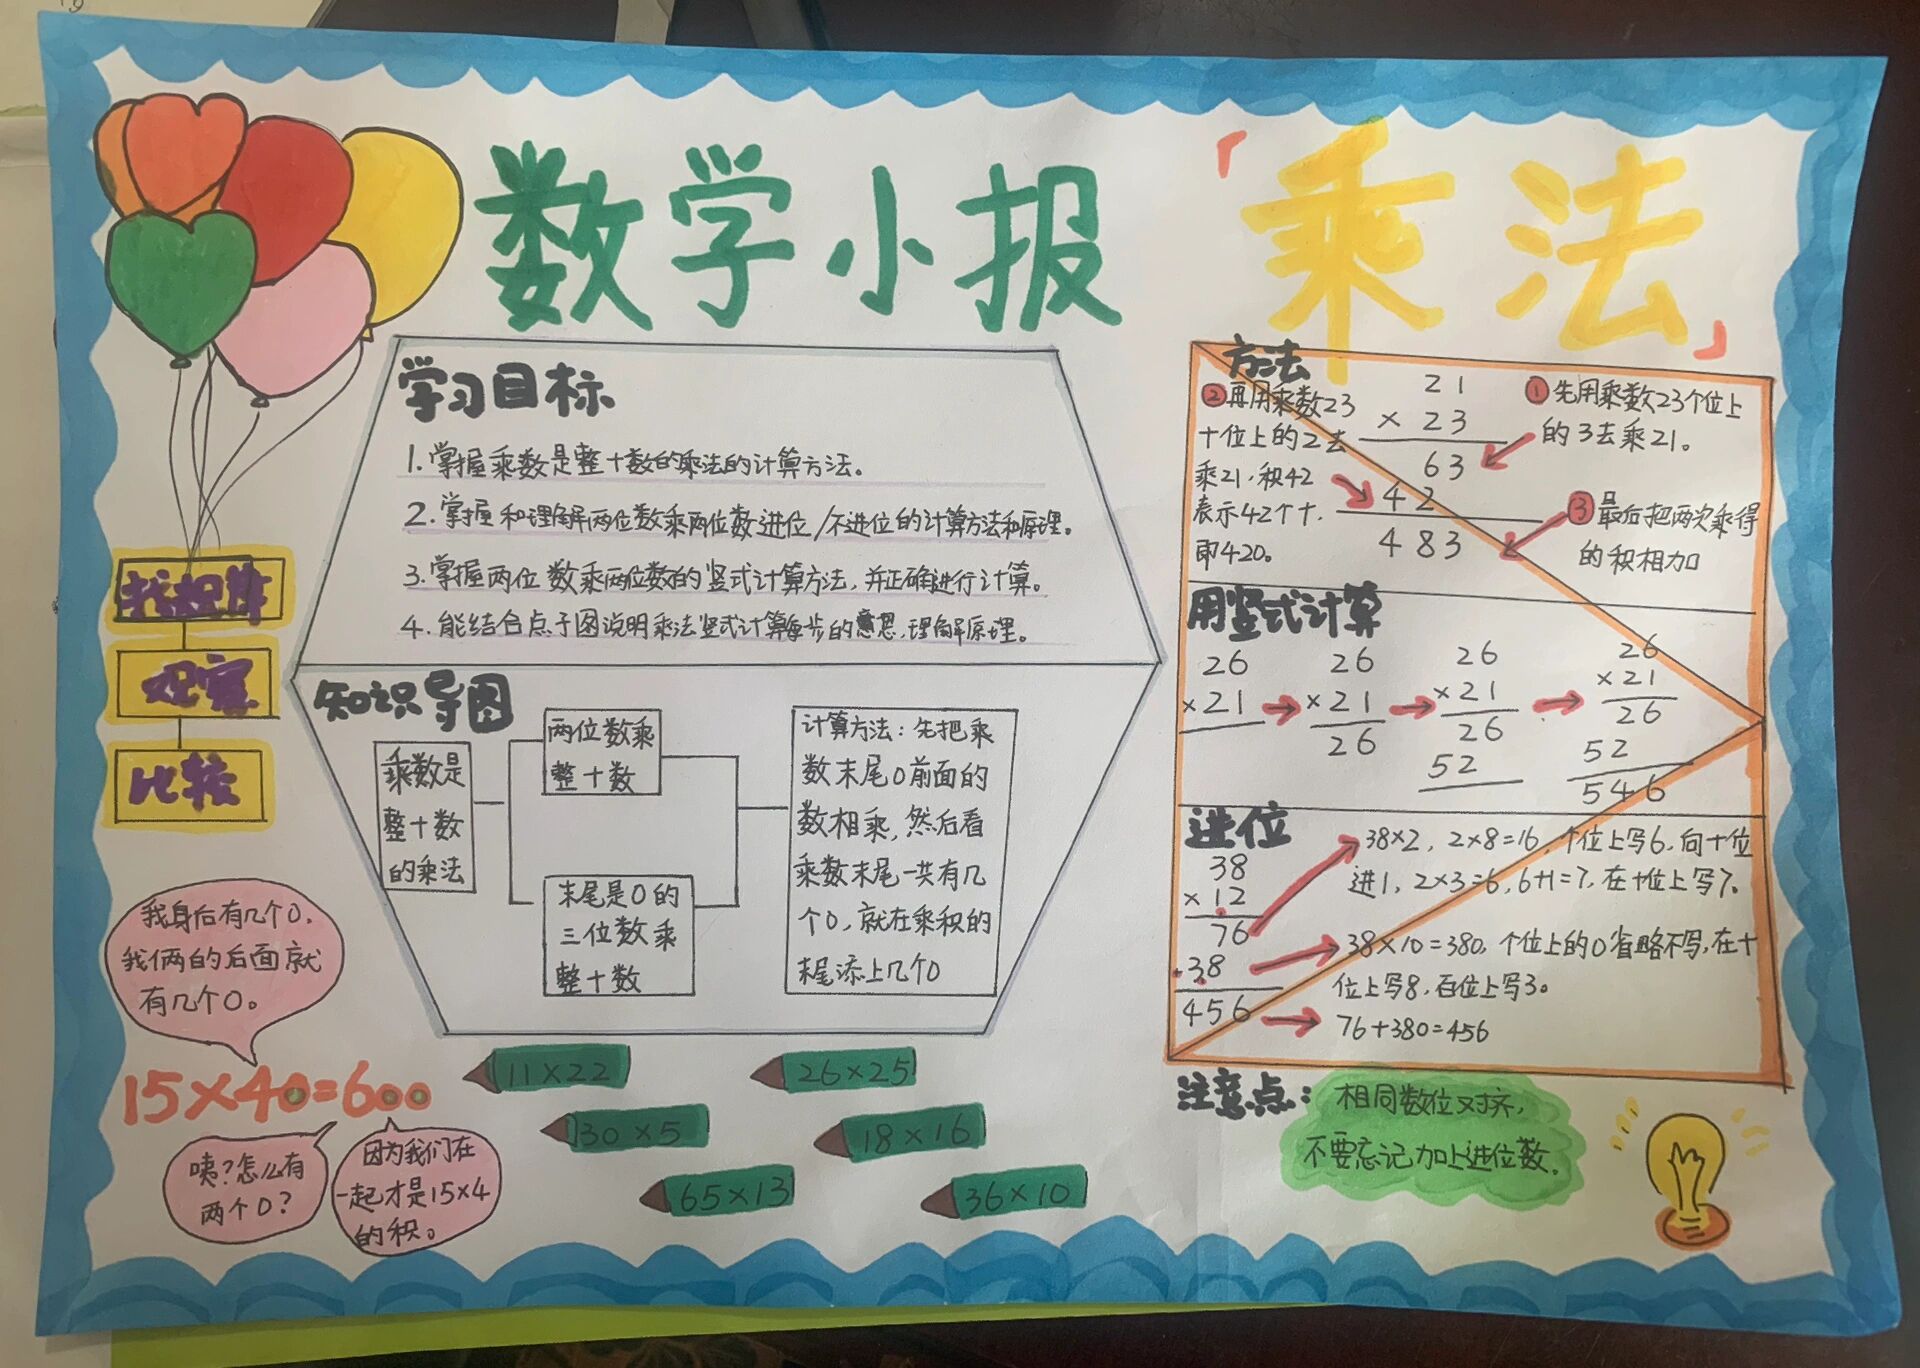 数学小报
「乘法」
学习目标
1.掌握乘数是整十数的乘法的计算方法。
2.掌握和理解两位数乘两位数进位/不进位的计算方法和原理。
3.掌握两位数乘两位数的竖式计算方法,并正确进行计算。
4.能结合点子图说明乘法竖式计算每步的意思,理解原理。
知识导图
乘数是
整十数
的乘法
两位数乘
整十数
末尾是0的
三位数乘
整十数
计算方法:先把乘
数末尾0前面的
数相乘,然后看
乘数末尾一共有几
个0,就在乘积的
末尾添上几个0
找规律
观察
比较
我身后有几个0,
我俩的后面就
有几个0。
15×40=600
咦?怎么有
两个0?
因为我们在
一起才是15×4
的积。
11×22
26×25
30×5
18×16
65×13
36×10
方法
②再用乘数23
十位上的2去
乘21,积42
表示42个十,
即420。
21
×23
63
42
483
①先用乘数23个位上
的3去乘21。
③最后把两次乘得
的积相加
用竖式计算
26
×21
26
×21
26
26
×21
26
52
26
×21
26
52
546
进位
38
×12
76
38
456
38×2,2×8=16,个位上写6,向十位
进1,2×3=6,6+1=7,在十位上写7。
38×10=380,个位上的0省略不写,在十
位上写8,百位上写3。
76+380=456
注意点:
相同数位对齐,
不要忘记加上进位数。